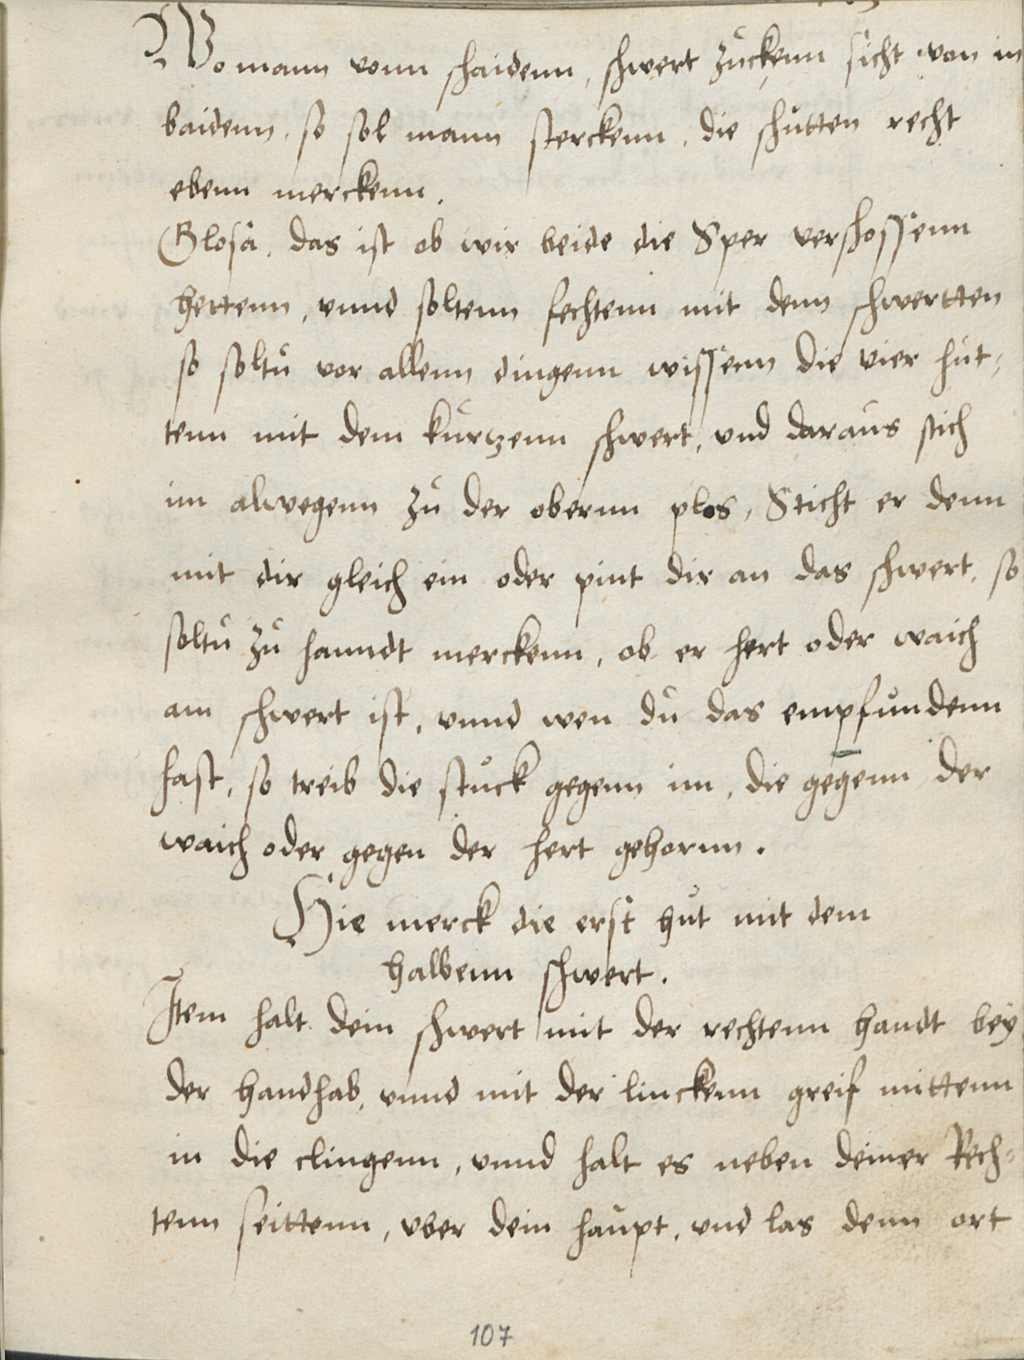 Wo mann vonn schaidenn, schwert zůckenn sicht von in
baidenn, so sol mann sterckenn, die schůtten recht
ebenn merckenn.
Glosa, das ist ob wir beide die Sper verschossenn
hettenn, vnnd soltenn fechtenn mit denn schwertten
so soltů vor allenn dingenn wissenn die vier hůt-
tenn mit dem kůrtzenn schwert, vnd daraůs stich
im alwegenn zů der obernn plos, Sticht er denn
mit dir gleich ein oder pint dir an das schwert, so
soltů zů hanndt merckenn, ob er hert oder waich
am schwert ist, vnnd wen dů das empfůndenn
hast, so treib die stůck gegenn im, die gegenn der
waich oder gegen der hert gehornn.
Hie merck die erst hůt mit dem
halbenn schwert.
Item halt dein schwert mit der rechtenn handt bey
der handhab, vnnd mit der linckenn greif mittenn
in die clingenn, vnnd halt es neben deiner Rech-
tenn seittenn, vber dein haůpt, vnd las denn ort
107